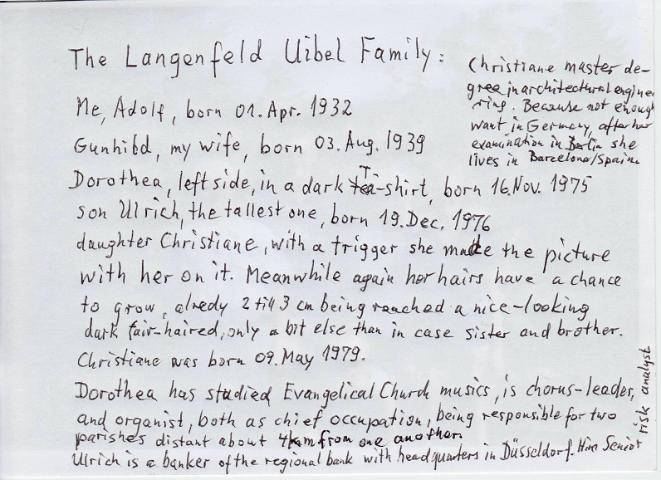 The Langenfeld Uibel Family:
Me, Adolf, born 01. Apr. 1932
Gunhild, my wife, born 03. Aug. 1939
Dorothea, left side, in a dark T-shirt, born 16. Nov. 1975
son Ulrich, the tallest one, born 19. Dec. 1976
daughter Christiane, with a trigger she made the picture
with her on it. Meanwhile again her hairs have a chance
to grow, alredy 2 till 3 cm being reached a nice-looking
dark fair-haired, only a bit else than in case sister and brother.
Christiane was born 09. May 1979.
Dorothea has studied Evangelical Church musics, is chorus-leader,
and organist, both as chief occupation, being responsible for two
parishes distant about 4km from one another.
Ulrich is a banker of the regional bank with headquarters in Düsseldorf. Senior
risk analyst
Christiane master de-
gree in architectural enginee
ring. Because not enough
want in Germany, after her
examination in Berlin she
lives in Barcelona/Spain